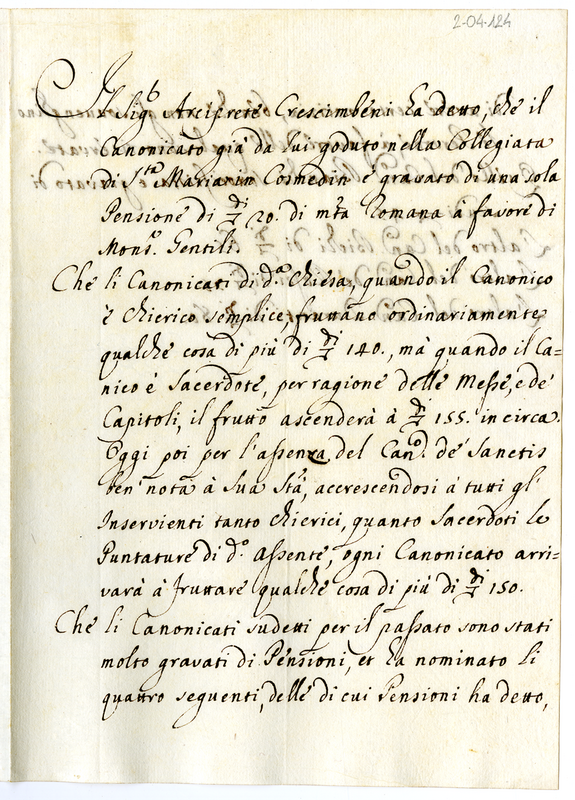 2-04-124
Il Sig.r Arciprete Crescimbeni ha detto, che il
Canonicato già da lui goduto nella Collegiata
di S.ta Maria in Cosmedin è gravato di una sola
Pensione di 20. di m.ta Romana à favore di
Mons.r Gentili.
Che li Canonicati di d.a Chiesa, quando il Canonico
è Chierico semplice, fruttano ordinariamente
qualche cosa di più di 140., mà quando il Ca-
nico è Sacerdote, per ragione delle Messe, e de'
Capitoli, il frutto ascenderà à 155. in circa.
Oggi poi per l'assenza del Can.o de Sanctis
ben nota à Sua S.tà, accrescendosi à tutti gl'
Inservienti tanto Chierici, quanto Sacerdoti le
Puntature di d.o Assente, ogni Canonicato arri=
varà à fruttare qualche cosa di più di 150.
Che li Canonicati sudetti per il passato sono stati
molto gravati di Pensioni, et ha nominato li
quattro seguenti, delle di cui Pensioni ha detto,